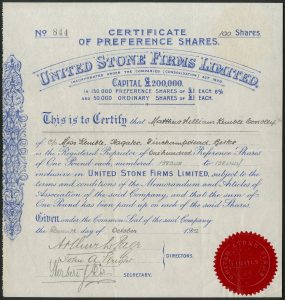 No 844 CERTIFICATE 100 Shares.
OF PREFERENCE SHARES.
UNITED STONE FIRMS LIMITED.
INCORPORATED UNDER THE COMPANIES (CONSOLIDATION) ACT 1908
CAPITAL £200,000
IN 150,000 PREFERENCE SHARES OF £1 EACH 6%
AND 50,000 ORDINARY SHARES OF £1 EACH.
This is to Certify that Matthew William Kemble
of c/o Miss Kemble,
is the Registered Proprietor of One hundred Preference Shares
of One Pound each, numbered to
inclusive in UNITED STONE FIRMS LIMITED, subject to the
terms and conditions of the Memorandum and Articles of
Association of the said Company, and that the sum of
One Pound has been paid up on each of the said Shares.
Given under the Common Seal of the said Company
the day of October 191
DIRECTORS.
SECRETARY.